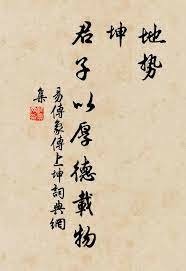 地势
坤
君子以厚德載物
易傳象傳上坤詞典網
集